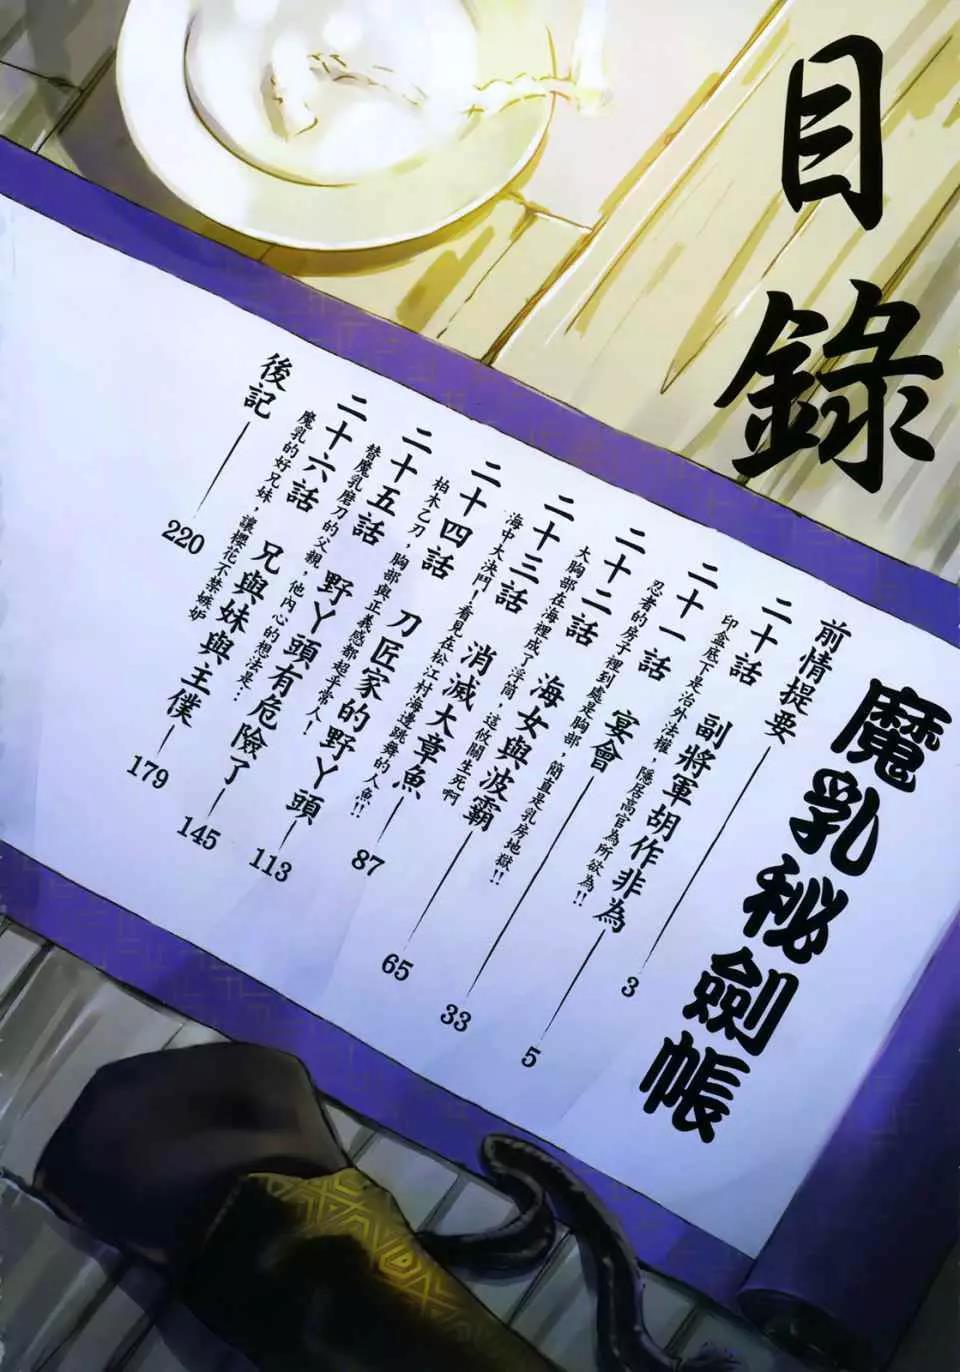 目錄
魔乳秘劍帳
前情提要 3
二十話 副將軍胡作非為 5
印盒底下是治外法權，隱居高官為所欲為!!
二十一話 宴會 33
忍者的房子裡到處是胸部，簡直是乳房地獄!!
二十二話 海女與波霸 65
大胸部在海裡成了浮筒，這攸關生死啊
二十三話 消滅大章魚 87
海中大決鬥！看見在松江村海邊跳舞的人魚!!
二十四話 刀匠家的野丫頭 113
柏木乙刀，胸部與正義感都超乎常人！
二十五話 野丫頭有危險了 145
替魔乳磨刀的父親，他內心的想法是…
二十六話 兄與妹與主僕 179
魔乳的好兄妹，讓櫻花不禁嫉妒
後記 220